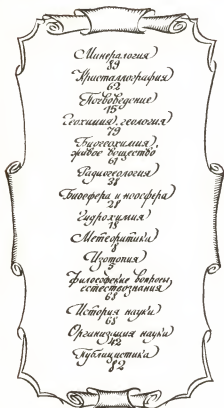 Минералогия
89
Кристаллография
62
Почвоведение
15
Геохимия, геология
79
Биогеохимия,
живое вещество
61
Радиогеология
38
Биосфера и ноосфера
28
Гидрохимия
18
Метеоритика
8
Изотопия
3
Философские вопросы
естествознания
68
История науки
68
Организация науки
42
Публицистика
82